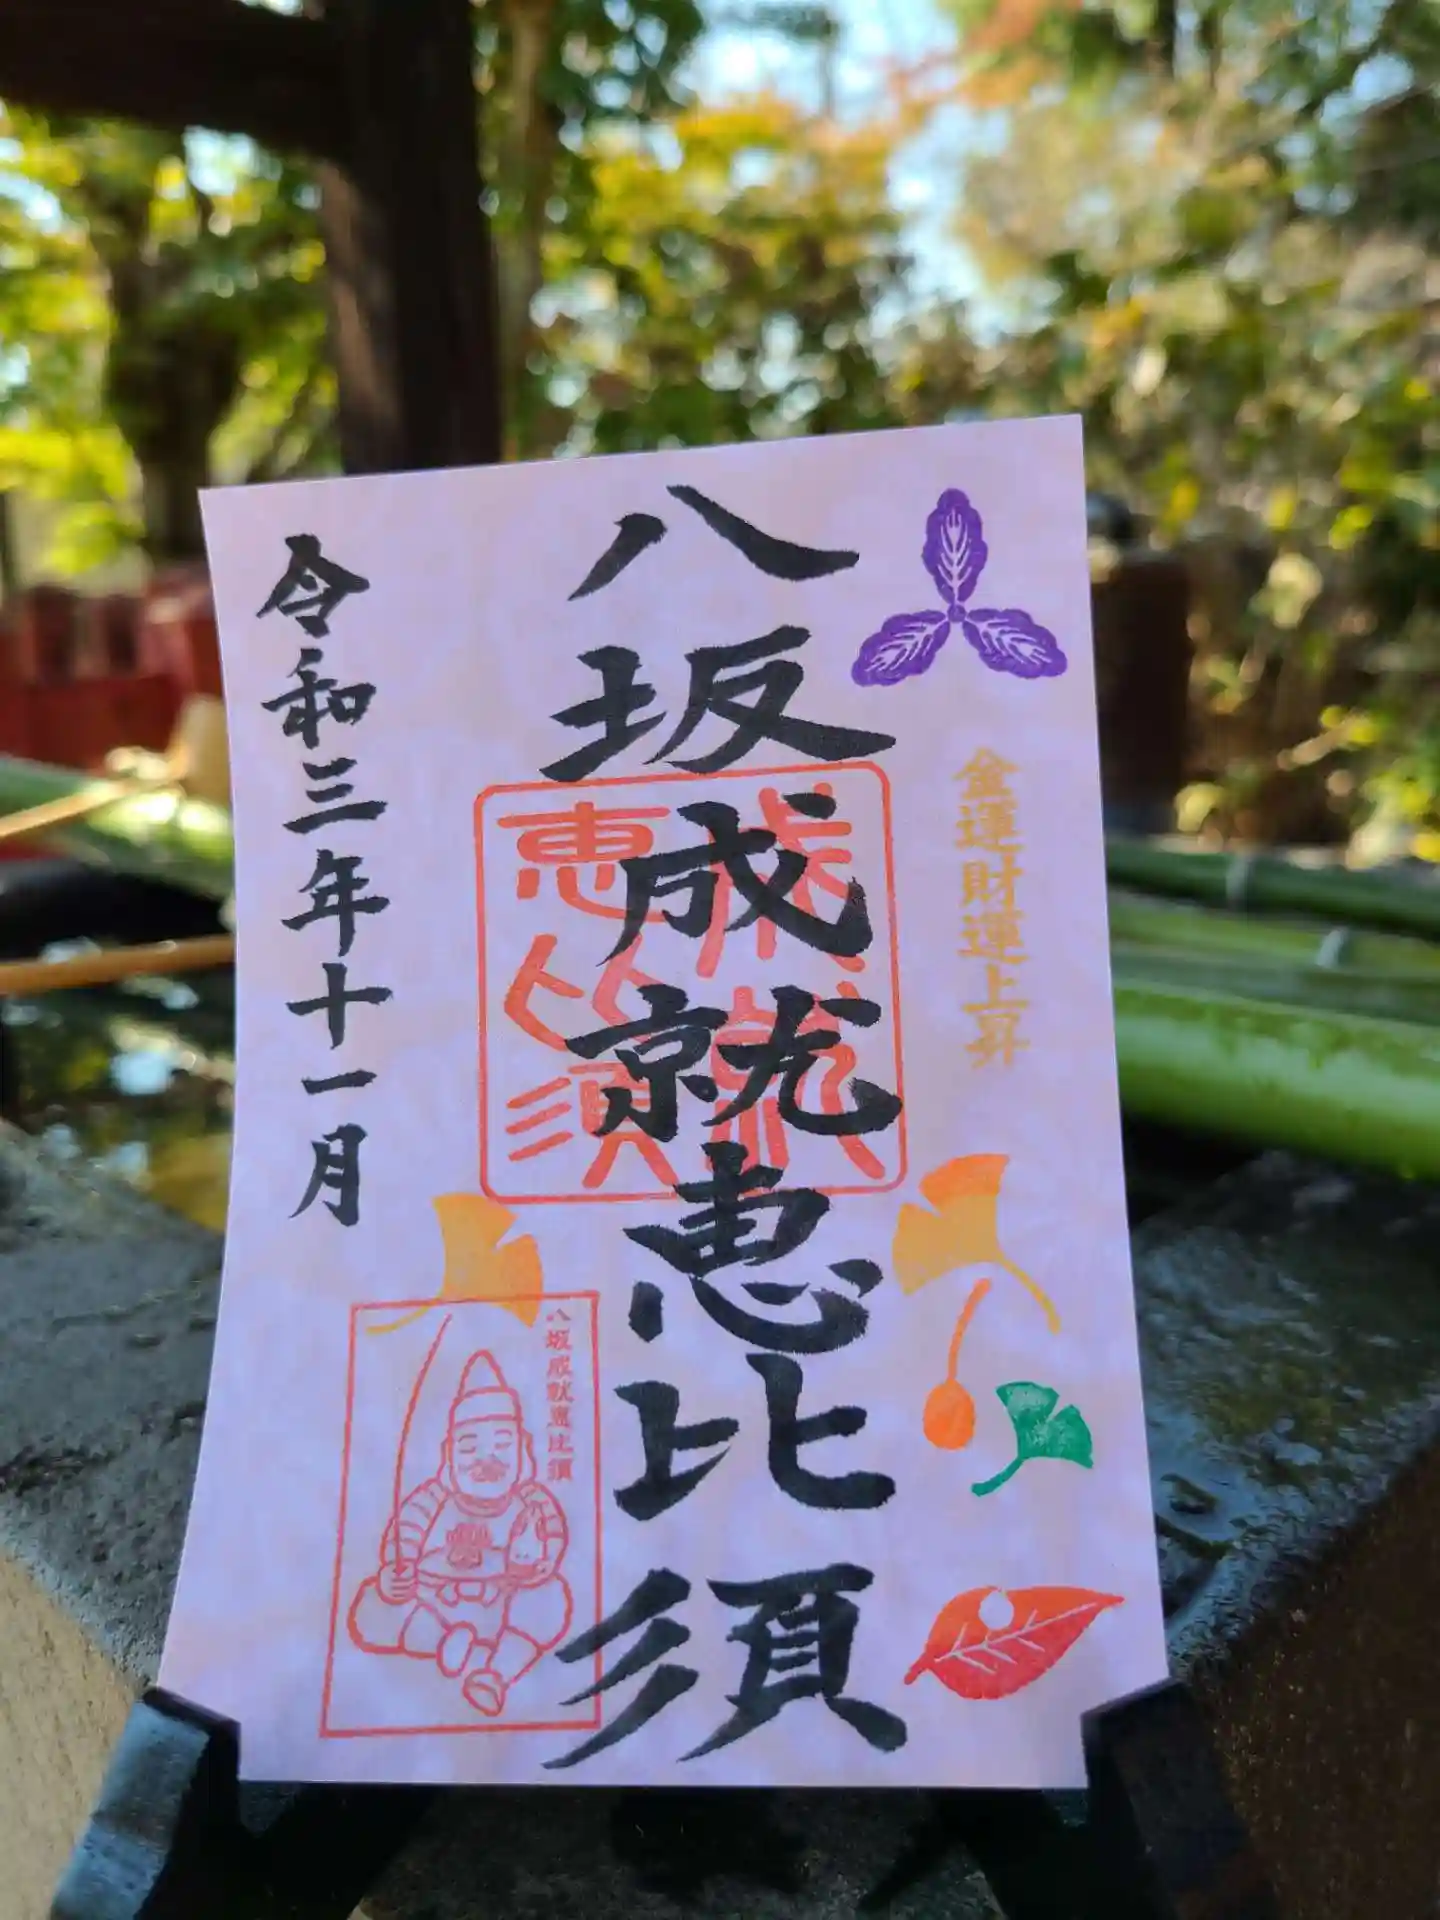 金運財運上昇
八坂成就恵比須
成就
恵比須
八坂成就恵比須
令和三年十一月